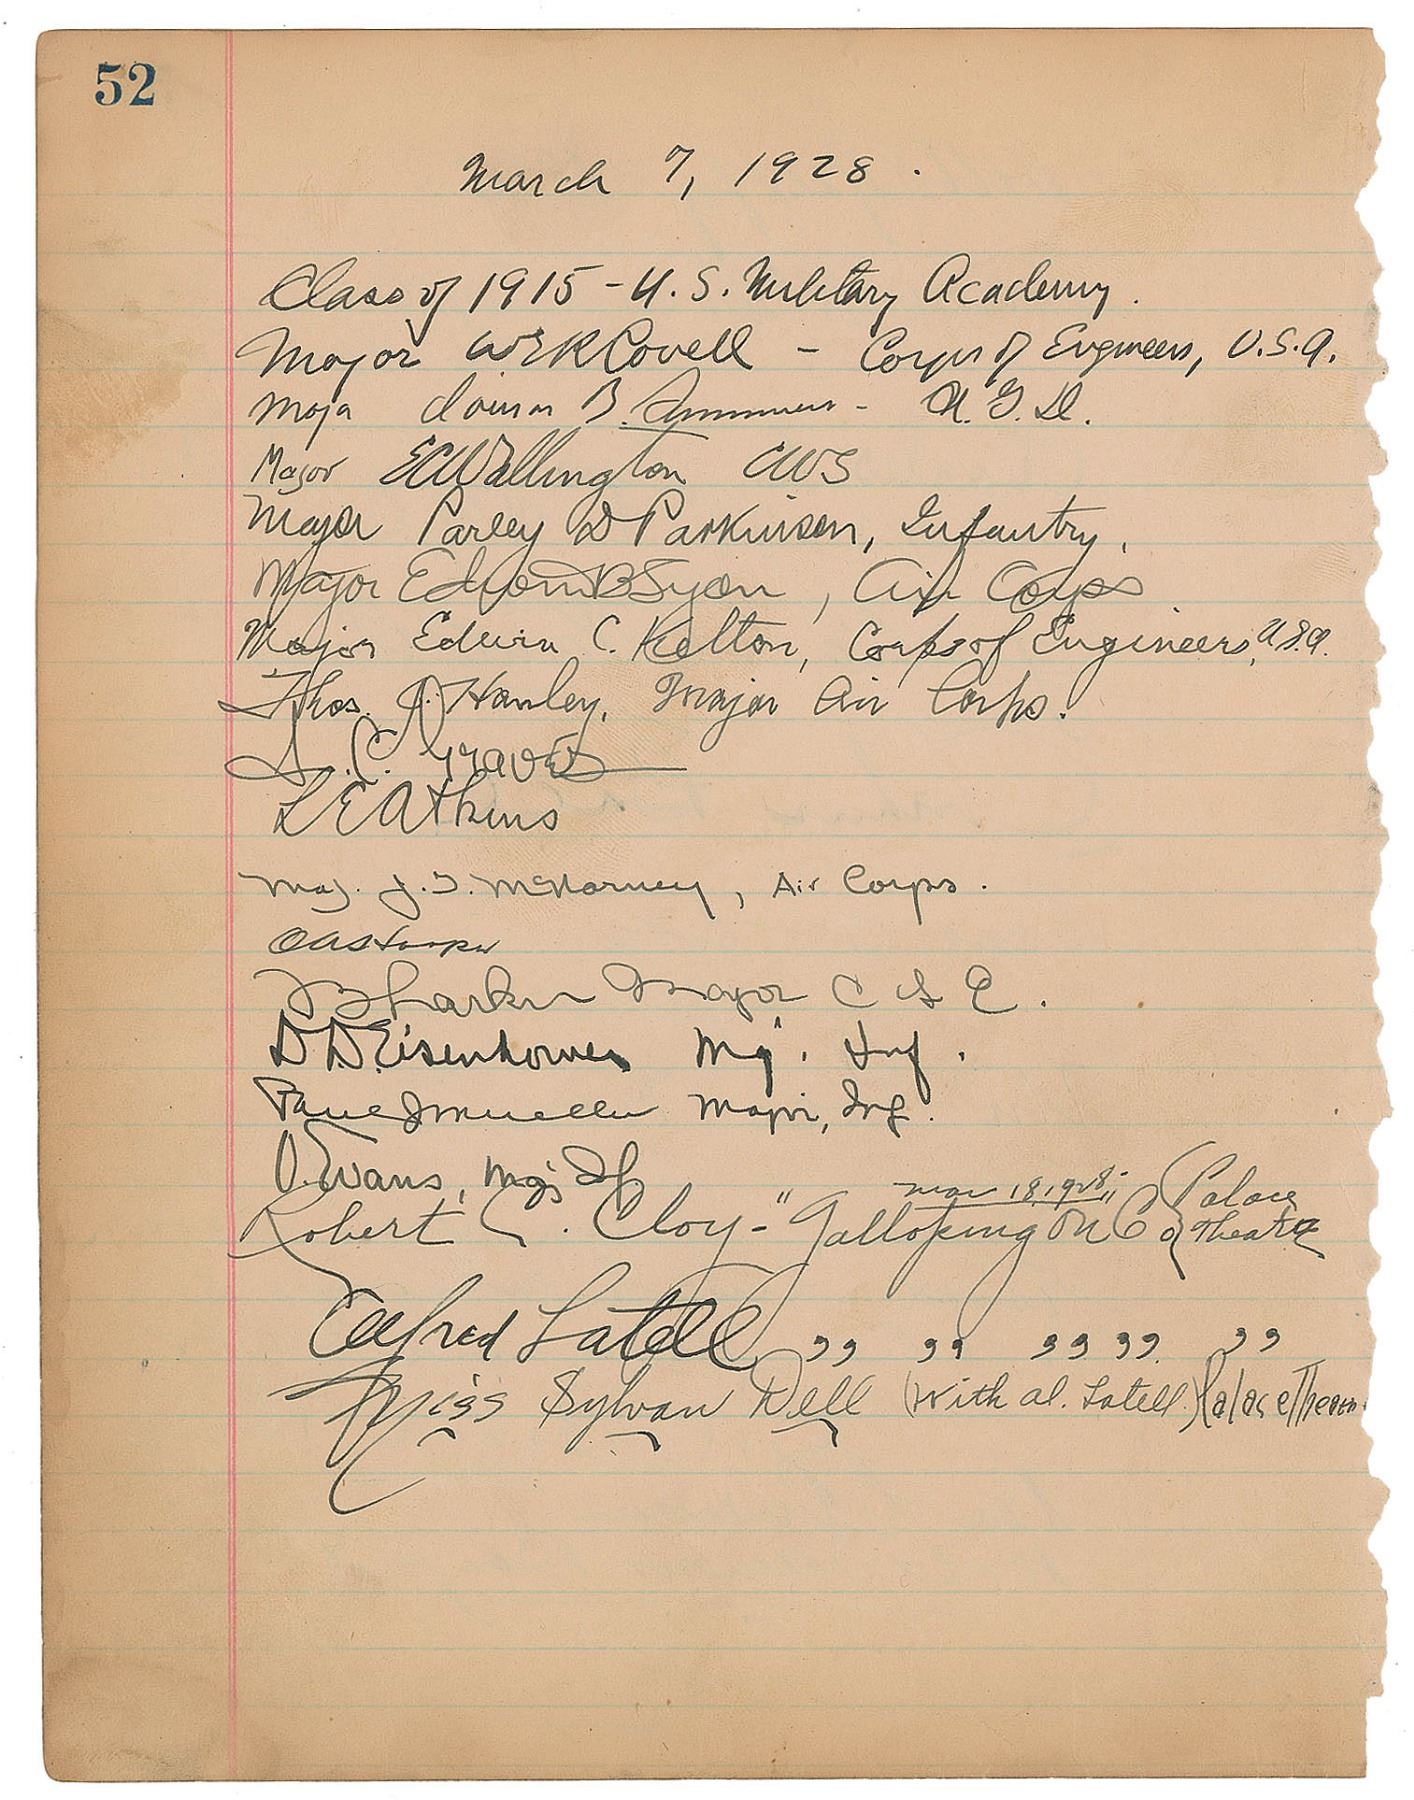 52
March 7, 1928.
Class of 1915 - U.S. Military Academy.
Major W E R Covell - Corps of Engineers, U.S.A.
Major B. - A. G. D.
Major E C Wallington CWS
Major Parley D Parkinson, Infantry.
Major Edwin B Lyon, Air Corps
Major Edwin C. Kelton, Corps of Engineers, U.S.A.
Thos. J. Hanley, Major Air Corps.
D. C. Graves
L E Atkins
Maj. J. T. McNarney, Air Corps.
T B Larkin Major C of E.
D. D. Eisenhower Maj. Inf.
Paul J Mueller Major, Inf.
V. Evans, Maj. Inf.
Mar 18, 1928
Robert C. Cloy - "Galloping On" Co { Palace Theatre
Alfred Latell ,, ,, ,, ,, ,,
Miss Sylvan Dell (With Al. Latell.) Palace Theatre